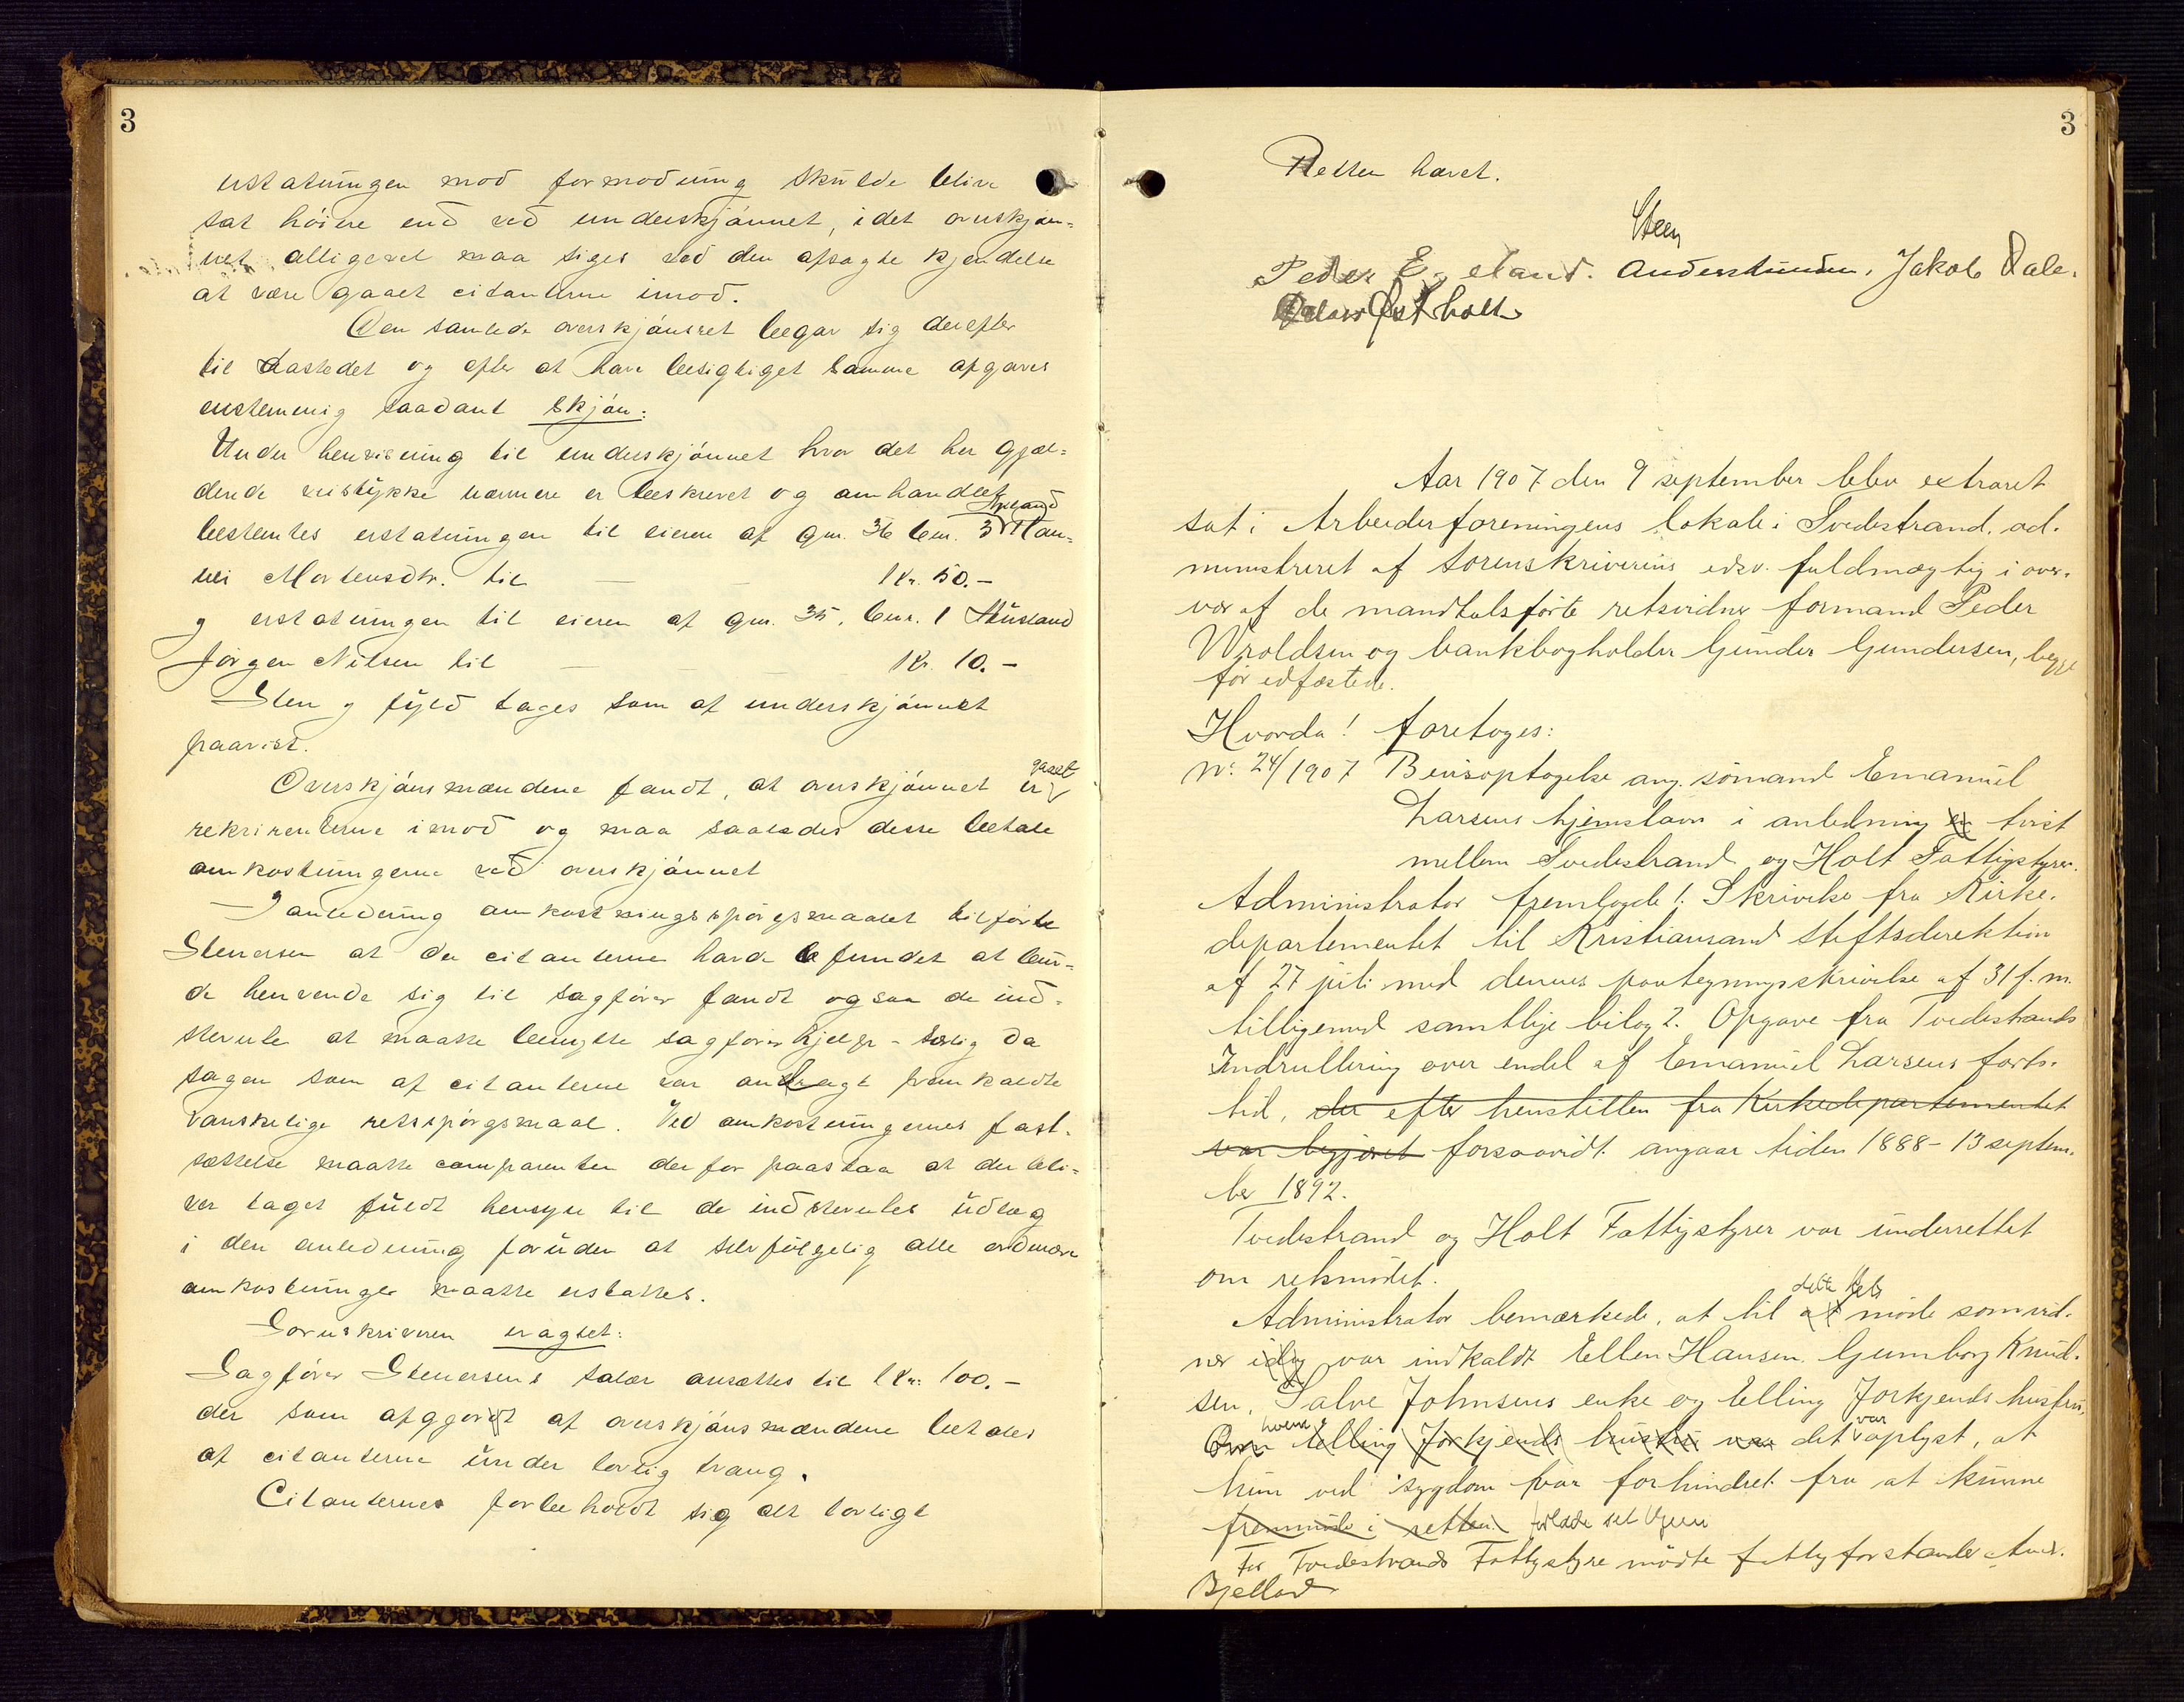 3
erstatningen mod formodning skulde blive
sat høiere end ved underskjønnet, idet overskjøn-
net alligevel maa siges ved den afsagte kjendelse
at være gaaet citanterne imod.
Den samlede overskjønsret begav sig derefter
til aastedet og efter at have besigtiget samme afgaves
enstemmig saadant skjøn:
Under henvisning til underskjønnet hvor det her gjæl-
dende veistykke nærmere er beskrevet og omhandlet
bestemtes erstatningen til eieren af gnr. 36 bnr. 3
Mortensdtr. til Kr. 50.-
og erstatningen til eieren af gnr. 35, bnr. 1
Jørgen Nilsen til Kr. 10.-
Sten og fyld tages som af underskjønnet
paavist.
Overskjønsmændene fandt, at overskjønnet er gaaet
rekvirenterne imod og maa saaledes disse betale
omkostningerne ved overskjønnet
I anledning omkostningsspørgsmaalet tilførte
Stenersen at da citanterne havde fundet at bur-
de henvende sig til sagfører fandt ogsaa de ind-
stevnte at maatte benytte sagførerhjelp - særlig da
sagen som af citanterne var anlagt fremkaldte
vanskelige retsspørgsmaal. Ved omkostningernes fast-
sættelse maatte comparenten derfor paastaa at der bli-
ver taget fuldt hensyn til de indstevntes udlæg
i den anledning foruden at selvfølgelig alle ordinære
omkostninger maatte erstattes.
Sorenskriveren eragtet:
Sagfører Stenersens salær ansættes til Kr. 100.-
der som afgjort af overskjønsmændene betales
af citanterne under lovlig tvang.
Citanternes forbeholdt sig alt lovligt
3
Retten hævet.
Steen
Peder Egeland. Jakob Dale.
Aar 1907 den 9 september blev extraret
sat i Arbeiderforeningens lokale i Tvedestrand, ad-
ministreret af sorenskriverens edsv. fuldmægtig i over-
vær af de mandtalsførte retsvidner formand Peder
Wroldsen og bankbogholder Gunder Gundersen, begge
før edfæstede.
Hvorda! foretoges:
No 24/1907 Bevisoptagelse ang. sømand Emanuel
Larsens hjemstavn i anledning tvist
mellem Tvedestrand og Holt Fattigstyrer.
Administrator fremlagde 1. Skrivelse fra Kirke-
departementet til Kristiansand stiftsdirektion
af 27 juli med dennes paategningsskrivelse af 31 f. m.
tilligemed samtlige bilag 2. Opgave fra Tvedestrands
Indrullering over endel af Emanuel Larsens farts-
tid, der efter henstillen fra Kirkedepartementet
var begjæret forsaavidt angaar tiden 1888 - 13 septem-
ber 1892.
Tvedestrand og Holt Fattigstyrer var underrettet
om retsmødet.
Administrator bemærkede, at til dette rets møde som vid-
ner idag var indkaldt Ellen Hansen, Gumborg Knud-
sen, Salve Johnsens enke og Elling Forkjends hustru,
Om Elling Forkjends hustru var det var oplyst, at
hun ved sygdom var forhindret fra at kunne
fremmøde i retten forlade sit hjem
For Tvedestrands Fattigstyre mødte fattigforstander And.
Bjelland